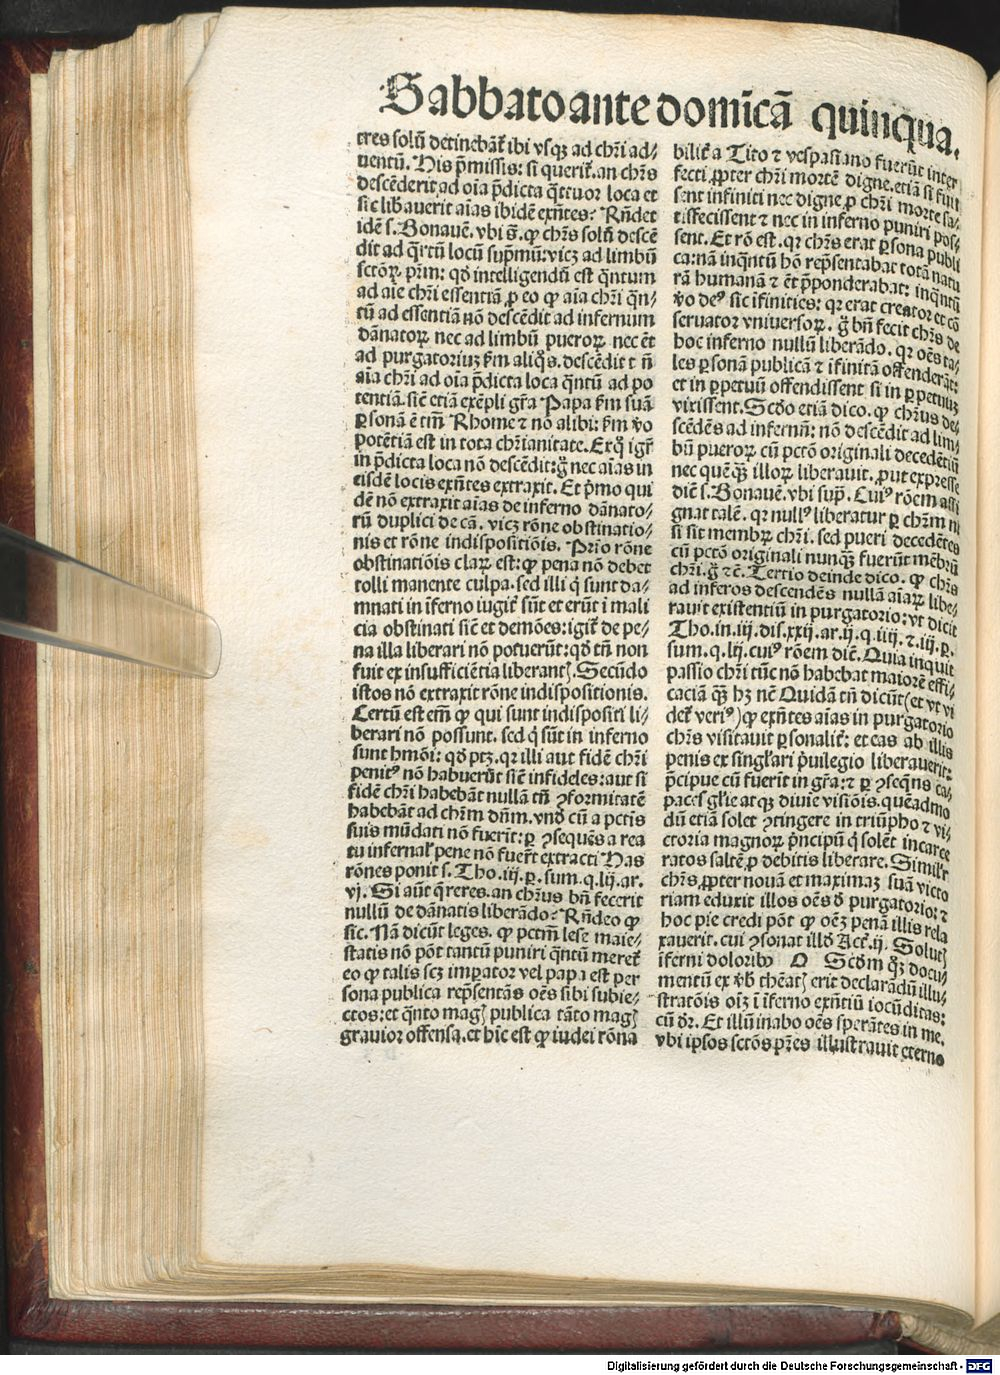 Sabbato ante domīcā quinqua.
tres solū detinebāt᷑ ibi vsqȝ ad chr̄i ad⸗
uentū. His p̄missis: si querit᷑. an chr̄s
descēderit ad oīa p̄dicta q̄ttuor loca et
sic lib̓auerit aīas ibidē exn̄tes? Rn̄det
idē s. Bonauē. vbi s̄. ꝙ chr̄s solū descē
dit ad q̄rtū locū sup̄mū: vicȝ ad limbū
sctōꝝ pr̄m: qđ intelligendū est q̄ntum
ad aīe chr̄i essentiā ꝓ eo ꝙ aīa chr̄i q̄n⸗
tū ad essentiā nō descēdit ad infernum
dānatoꝝ nec ad limbū pueroꝝ nec ēt
ad purgatoriuȝ. km̄ aliq̄s. descēdit t n̄
aīa chr̄i ad oīa p̄dicta loca q̄ntū ad po
tentiā. sic̄ etiā exēpli gr̄a Papa km̄ suā
ꝑsonā ē tm̄ Rhome ⁊ nō alibi: km̄ v̓o
potētiā est in tota chr̄ianitate. Ex q̊ igr̄
in p̄dicta loca nō descēdit: g̊ nec aīas in
eisdē locis exn̄tes extraxit. Et p̄mo qui
dē nō extraxit aīas de inferno dānato⸗
rū duplici de cā. vicȝ rōne obstinatio⸗
nis et rōne indispositiōis. Prīo rōne
obstinatiōis claꝝ est: ꝙ pena nō debet
tolli manente culpa. sed illi q̇ sunt da⸗
mnati in īferno iugit᷑ sūt et erūt ī mali
cia obstinati sic̄ et demōes: igit᷑ de pe⸗
na illa liberari nō potuerūt: qđ tn̄ non
fuit ex insufficiētia liberantꝭ. Secūdo
istos nō extraxit rōne indispositionis.
Certū est em̄ ꝙ qui sunt indispositi li⸗
berari nō possunt. sed q̇ sūt in inferno
sunt hmōi: qđ ptȝ. qr illi aut fidē chr̄i
penitꝰ nō habuerūt sic̄ infideles: aut si
fidē chr̄i habebāt nullā tn̄ ↄformitatē
habebāt ad chr̄m dn̄m. vnđ cū a pctīs
suis mūdati nō fuerīt: ꝑ ↄsequēs a rea
tu infernal̓ pene nō fuer̄t extracti Has
rōnes ponit s. Tho. iij. ꝑ. sum. q. lij. ar.
vj. Si aūt q̄reres. an chr̄us bn̄ fecerit
nullū de dānatis liberādo? Rn̄deo ꝙ
sic. Nā dicūt leges. ꝙ pctm̄ lese maie⸗
statis nō pōt tantū puniri q̄ntū meret᷑
eo ꝙ talis scȝ impator vel papa est per
sona publica rep̄sentās oēs sibi subie⸗
ctos: et q̄nto magꝭ publica tāto magꝭ
grauior offensa. et hic est ꝙ iudei rōna
bilit᷑ a Tito ⁊ vespasiano fuerūt inter
fecti ꝓpter chr̄i mortē digne. etiā si fuis
sent infiniti nec digne ꝓ chr̄i morte sa⸗
tisfecissent ⁊ nec in inferno puniri pos⸗
sent. Et rō est. qr chr̄s erat ꝑsona publi
ca: nā inq̄ntū hō rep̄sentabat totā natu
rā humanā ⁊ ēt p̄ponderabat: inq̄ntū
v̓o deꝰ sic īfinities: qr erat creator et cō
seruator vniuersoꝝ. g̊ bn̄ fecit chr̄s de
hoc inferno nullū liberādo. qr oēs ta⸗
les ꝑsonā publicā ⁊ īfinitā offenderāt:
et in ꝑpetuū offendissent si in ꝑpetuuȝ
vixissent. Scđo etiā dico. ꝙ chr̄us de⸗
scēdēs ad infernū: nō descēdit ad lim⸗
bū pueroꝝ cū pctō originali decedētiū
nec quēqȝ̄ illoꝝ liberauit. ꝓut expresse
dic̄ s. Bonauē. vbi sup̄. Cuiꝰ rōem assi
gnat talē. qr nullꝰ liberatur ꝑ chr̄m ni
si sit membꝝ chr̄i. sed pueri decedētes
cū pctō originali nunqȝ̄ fuerūt mēbrū
chr̄i. g̊ ⁊c̄. Tertio deinde dico. ꝙ chr̄s
ad inferos descendēs nullā aīaꝝ libe⸗
rauit existentiū in purgatorio: vt dicit
Tho. in. iij. dis. xxij. ar. ij. q. iiij. ⁊. iij. ꝑ.
sum. q. lij. cuiꝰ rōem dic̄. Quia inquit
passio chr̄i tūc nō habebat maiorē effi⸗
caciā qȝ̄ hȝ nc̄ Quidā tn̄ dicūt (et vt vi
det᷑ veriꝰ) ꝙ exn̄tes aīas in purgatorio
chr̄s visitauit ꝑsonalit᷑: et eas ab illis
penis ex singl̓ari p̄uilegio liberauerit:
p̄cipue cū fuerīt in gr̄a: ⁊ ꝑ ↄseq̄ns ca⸗
paces gl̓ie atqȝ diuie visiōis. quēadmo
dū etiā solet ↄtingere in triūpho ⁊ vi⸗
ctoria magnoꝝ p̄ncipū q̇ solēt incarce
ratos saltē ꝓ debitis liberare. Simil̓r
chr̄s ꝓpter nouā et maximaȝ suā victo
riam eduxit illos oēs đ purgatorio: ⁊
hoc pie credi pōt ꝙ oēȝ penā illis rela
xauerit. cui ↄsonat illđ Act̄. ij. Solutꝭ
īferni doloribꝰ O Scđm qȝ̄ docu⸗
mentū ex v̓b̓ thēatꝭ erit declarādū illu⸗
stratōis oīȝ ī īferno exn̄tiū iocūditas:
cū đr. Et illūinabo oēs sperātes in me.
vbi ipsos sctōs pr̄es illustrauit eterno
Digitalisierung gefördert durch die Deutsche Forschungsgemeinschaft - DFG